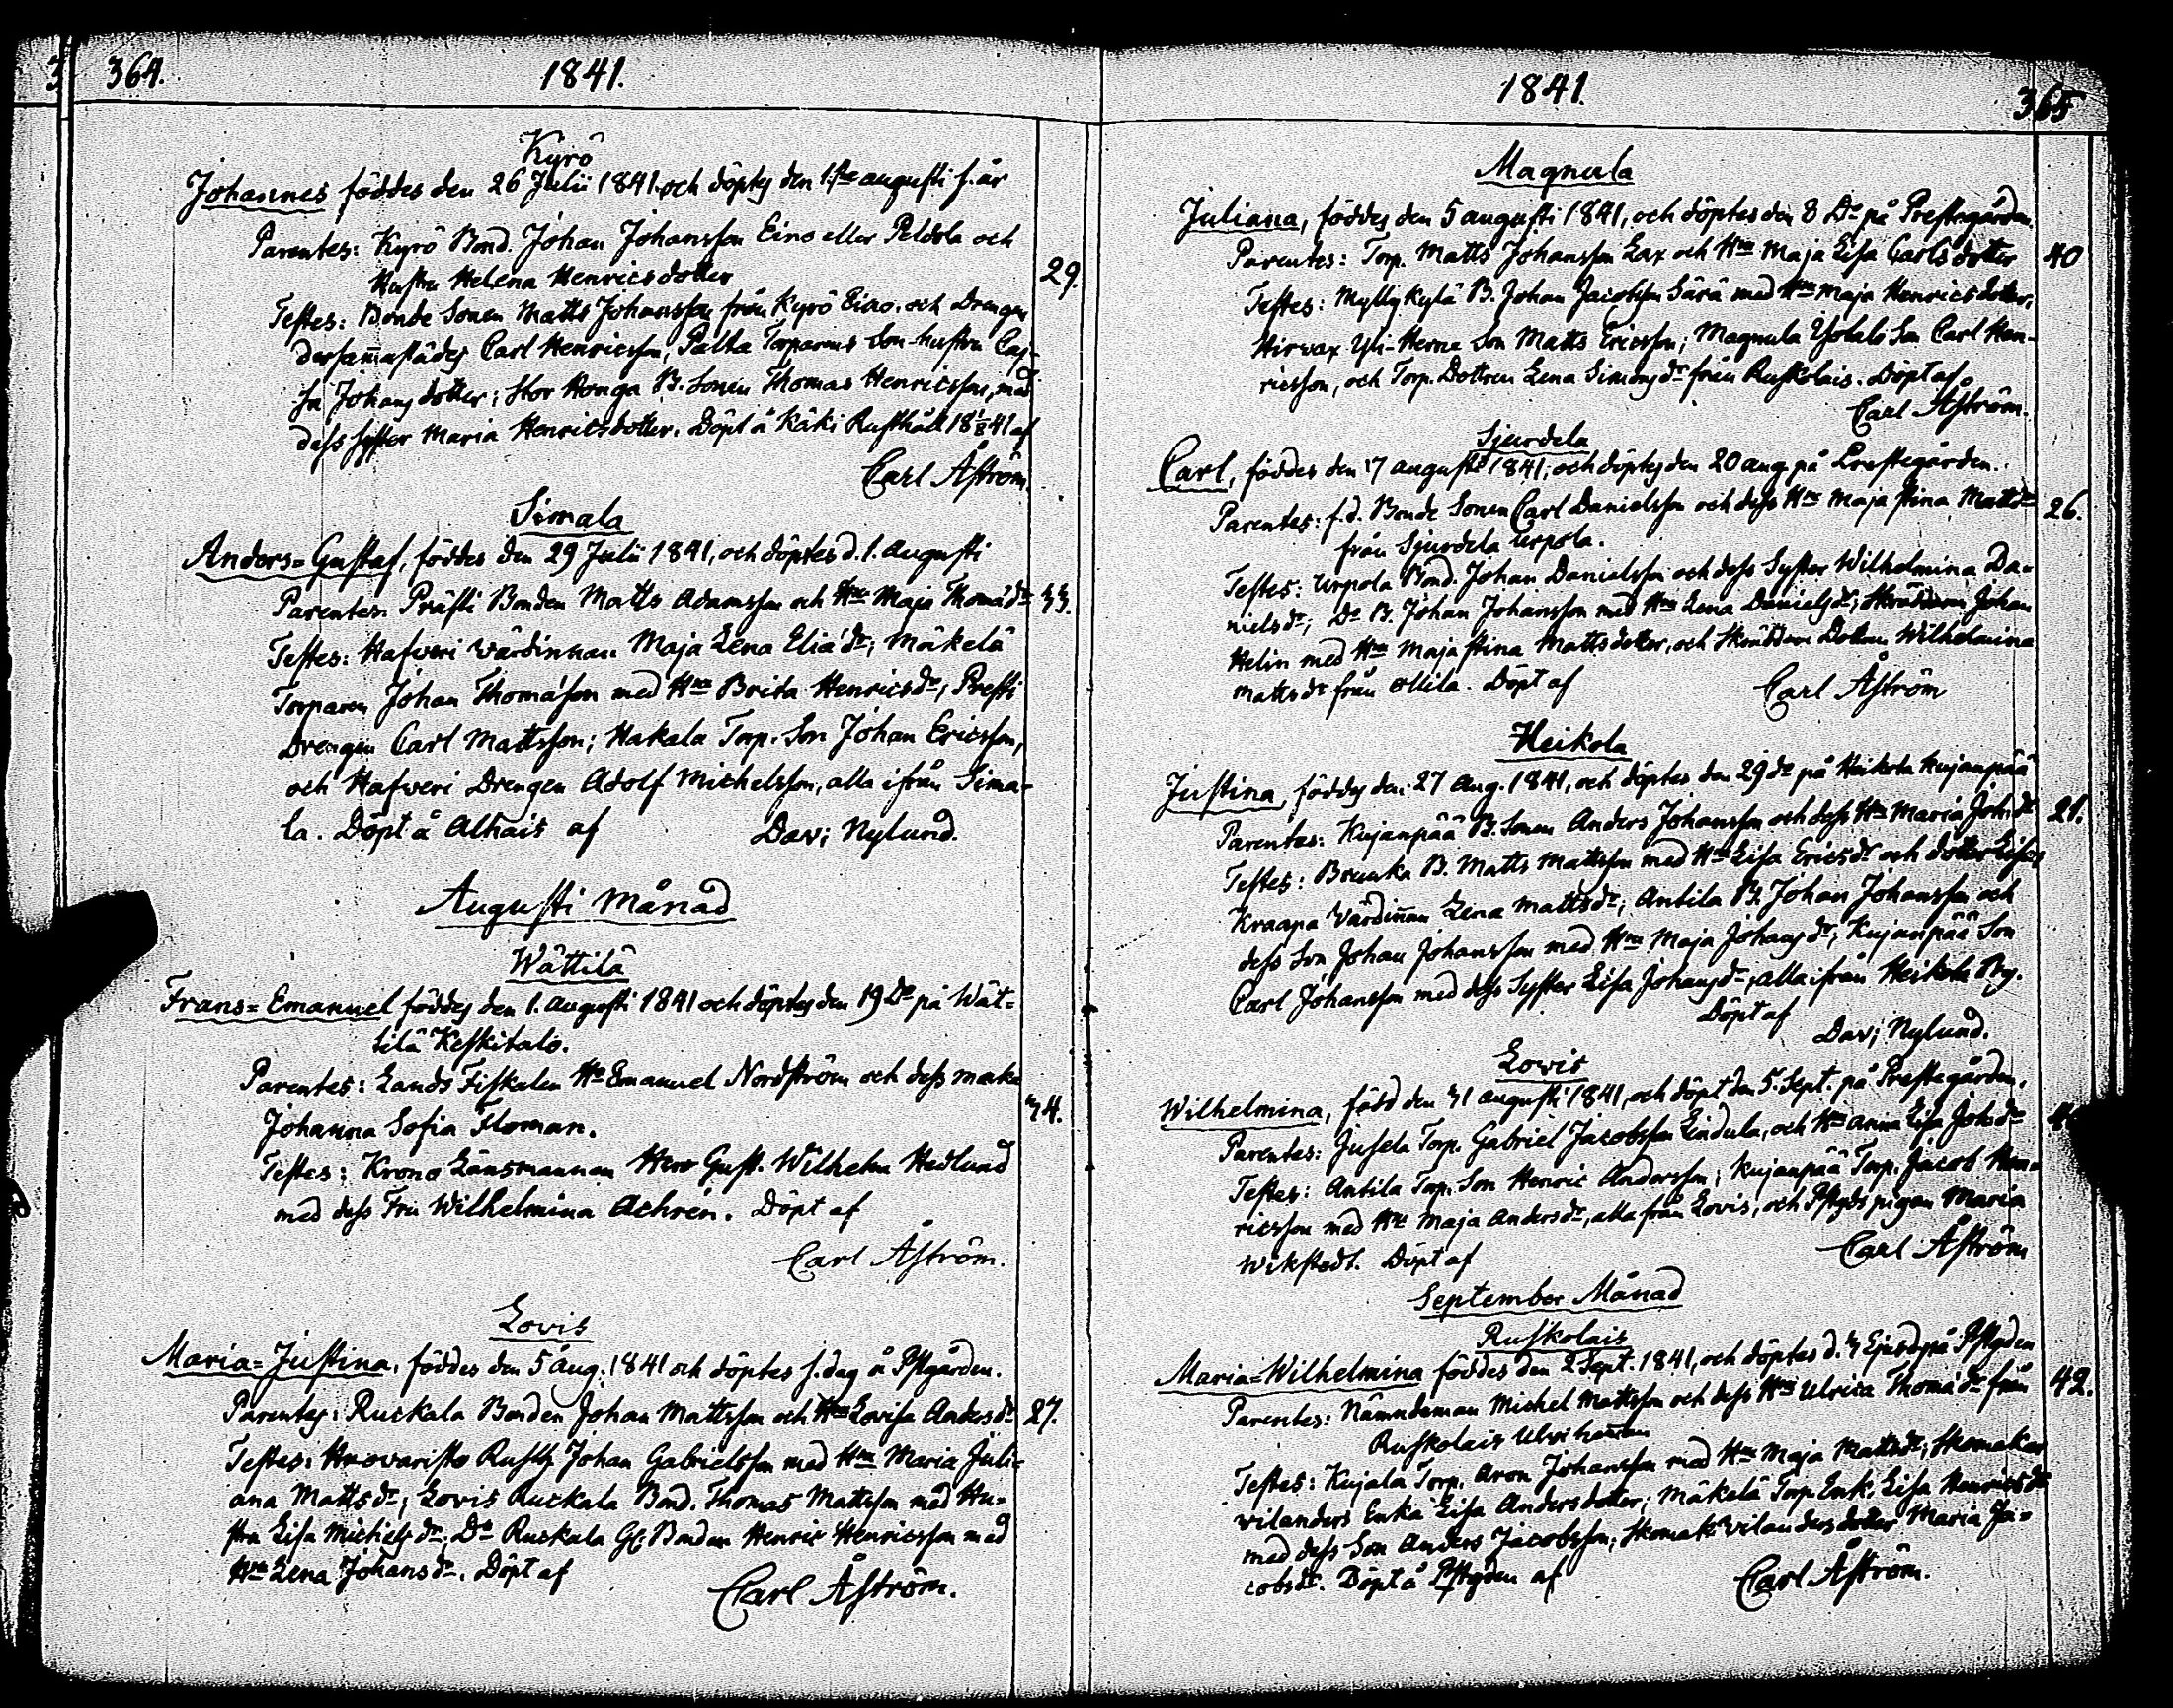 364.
1841.
Kyrö
Johannes föddes den 26 Julii 1841. och döptes den 1:ste augusti s. år
Parentes: Kyrö Bond. Johan Johansson Eino eller Peldola och
Hustru Helena Henricsdotter
29.
Testes: Bonde Sonen Matts Johansson från Kyrö Eino. och Drengen
dersam̄astädes Carl Henricsson, Palta Torparens Son-hustru Caj-
sa Johansdotter; Stor Honga B. Sonen Thomas Henricsson, med
dess syster Maria Henricsdotter. Döpt å Käki Rusthåll 18 1/8 41 af
Carl Åström.
Simala
Anders=Gustaf, föddes den 29 Julii 1841, och döptes d. 1. Augusti
Parentes. Prästi Bonden Matts Adamsson och Hru Maja Thomædr
33.
Testes: Hafveri värdinnan Maja Lena Eliædr; Mäkelä
Torparen Johan Thomæson med Hru Brita Henricsdr; Presti
Drengen Carl Mattsson; Hakala Torp. Son Johan Ericsson,
och Hafveri Drengen Adolf Michelsson, alla ifrån Sima-
la. Döpt å Alhais af Dav; Nylund.
Augusti Månad
Wättilä
Frans=Emanuel föddes den 1. augusti 1841 och döptes den 19 Do på Wät=
tilä Keskitalo.
Parentes: Lands Fiskalen Hr Emanuel Nordström och dess maka
Johanna Sofia Floman.
34.
Testes: Krono Länsmannen Herr Gust. Wilhelm Hedlund
med dess Fru Wilhelmina Achrén. Döpt af
Carl Åström.
Lovis
Maria=Justina, föddes den 5 aug. 1841 och döptes s. dag å Pstgården.
Parentes: Ruckala Bonden Johan Mattsson och Hru Lovisa Andersdr
27.
Testes: Rusth. Johan Gabrielsson med Hru Maria Juli=
ana Mattsdr; Lovis Ruckala Bond. Thomas Mattsson med Hu=
stru Lisa Michelsdr; Do Ruckala Gl. Bonden Henric Henricsson med
Hru Lena Johansdr. Döpt af
Carl Åström.
1841.
365
Magnula
Juliana, föddes den 5 augusti 1841, och döptes den 8 Do på Prestegården.
Parentes: Torp. Matts Johansson Lax och Hru Maja Lisa Carlsdotter
40
Testes: Myllykylä B. Johan Jacobsson Särä med Hru Maja Henricsdotter,
Hirvax Yli-Herne Son Matts Ericsson; Magnula Ylotalo Son Carl Hen-
ricsson, och Torp. Dottren Lena Simonsdr från Ruskolais. Döpt af
Carl Åström.
Sjurdela
Carl, föddes den 17 augusti 1841, och döptes den 20 aug. på Prestegården.
Parentes: f. d. Bonde Sonen Carl Danielsson och dess Hru Maja Stina Mattsdr
från Sjurdela Urpola.
26.
Testes: Urpola Bond. Johan Danielsson och dess Syster Wilhelmina Da-
nielsdr; Do B. Johan Johansson med Hru Lena Danielsdr; Skräddaren Johan
Helin med Hru Maja Stina Mattsdotter, och Skräddare Dottren Wilhelmina
Mattsdr från Ollila. Döpt af Carl Åström
Heikola
Justina, föddes den 27 aug. 1841, och döptes den 29 do på Heikola Kujanpää
Parentes: Kujanpää B. Sonen Anders Johansson och dess Hru Maria Joh:dr
21.
Testes: Brunka B. Matts Mattsson med Hru Lisa Ericsdr och dotter Lisa;
Kraapa Värdin̄an Lena Mattsdr; Antila B. Johan Johansson och
dess Son Johan Johansson med Hru Maja Johansdr; Kujanpää Son
Carl Johansson med dess Syster Lisa Johansdr; alla ifrån Heikola By.
Döpt af
Dav; Nylund.
Lovis
Wilhelmina, född den 31 augusti 1841, och döpt den 5. Sept. på Prestegården.
Parentes: Jusela Torp. Gabriel Jacobsson Lindula, och Hru Anna Lisa Johsdr
Testes: Antila Torp. Son Henric Andersson; Kujanpää Torp. Jacob Hen-
ricsson med Hru Maja Andersdr, alla från Lovis, och Pstgds pigan Maria
Wikstedt. Döpt af Carl Åström
September Månad
Ruskolais
Maria=Wilhelmina föddes den 2 Sept. 1841, och döptes d. 3 Ejusd. på Pstgden
Parentes: Nämndeman Michel Mattsson och dess Hru Ulrica Thomædr från
42.
Ruskolais
Testes: Kujala Torp. Aron Johansson med Hru Maja Mattsdr; Skomakar
Vilanders Enka Lisa Andersdotter; Mäkelä Torp. Enk. Lisa Henricsdr
med dess Son Anders Jacobsson; Skomak. Vilanders dotter Maria Ja=
cobsdr. Döpt å Pstgden af Carl Åström.